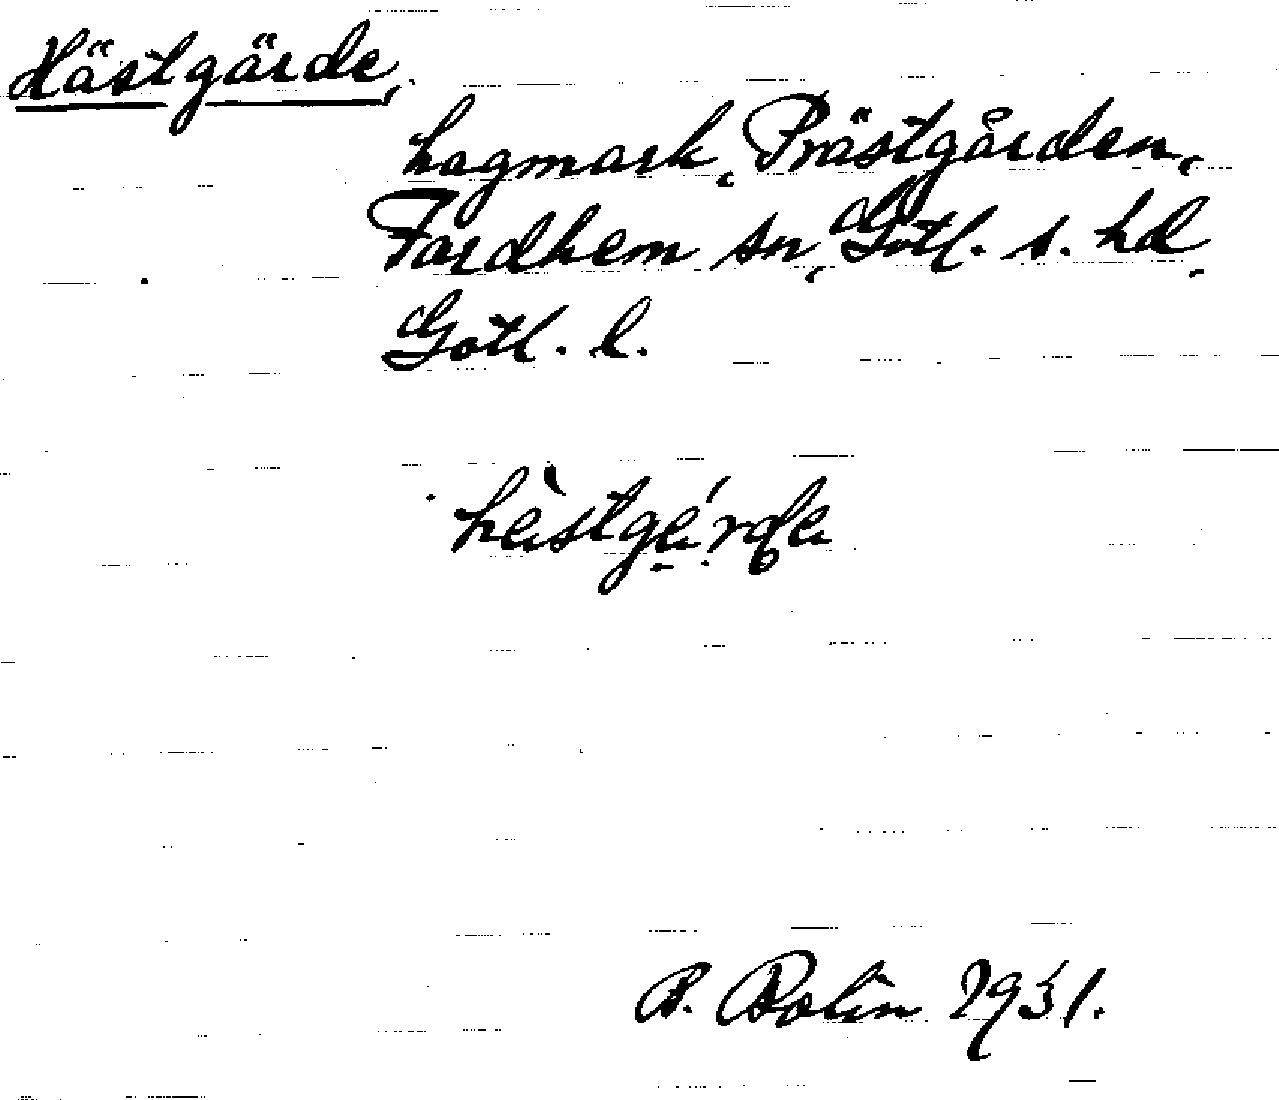 Hästgärde,
hagmark, Prästgården,
Fardhem sn, Gotl. s. hd,
Gotl. l.
hàstgá̱rda
B. Bolin 1931.